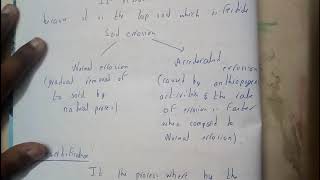 because it is the top soil which is fertile
Soil erosion
Normal erosion
(gradual removal of
to soil by
natural process)
Accelerated erosion
(caused by anthropogen
activities & the rate
of erosion is faster
when compared to
Normal erosion).
It the process where by the